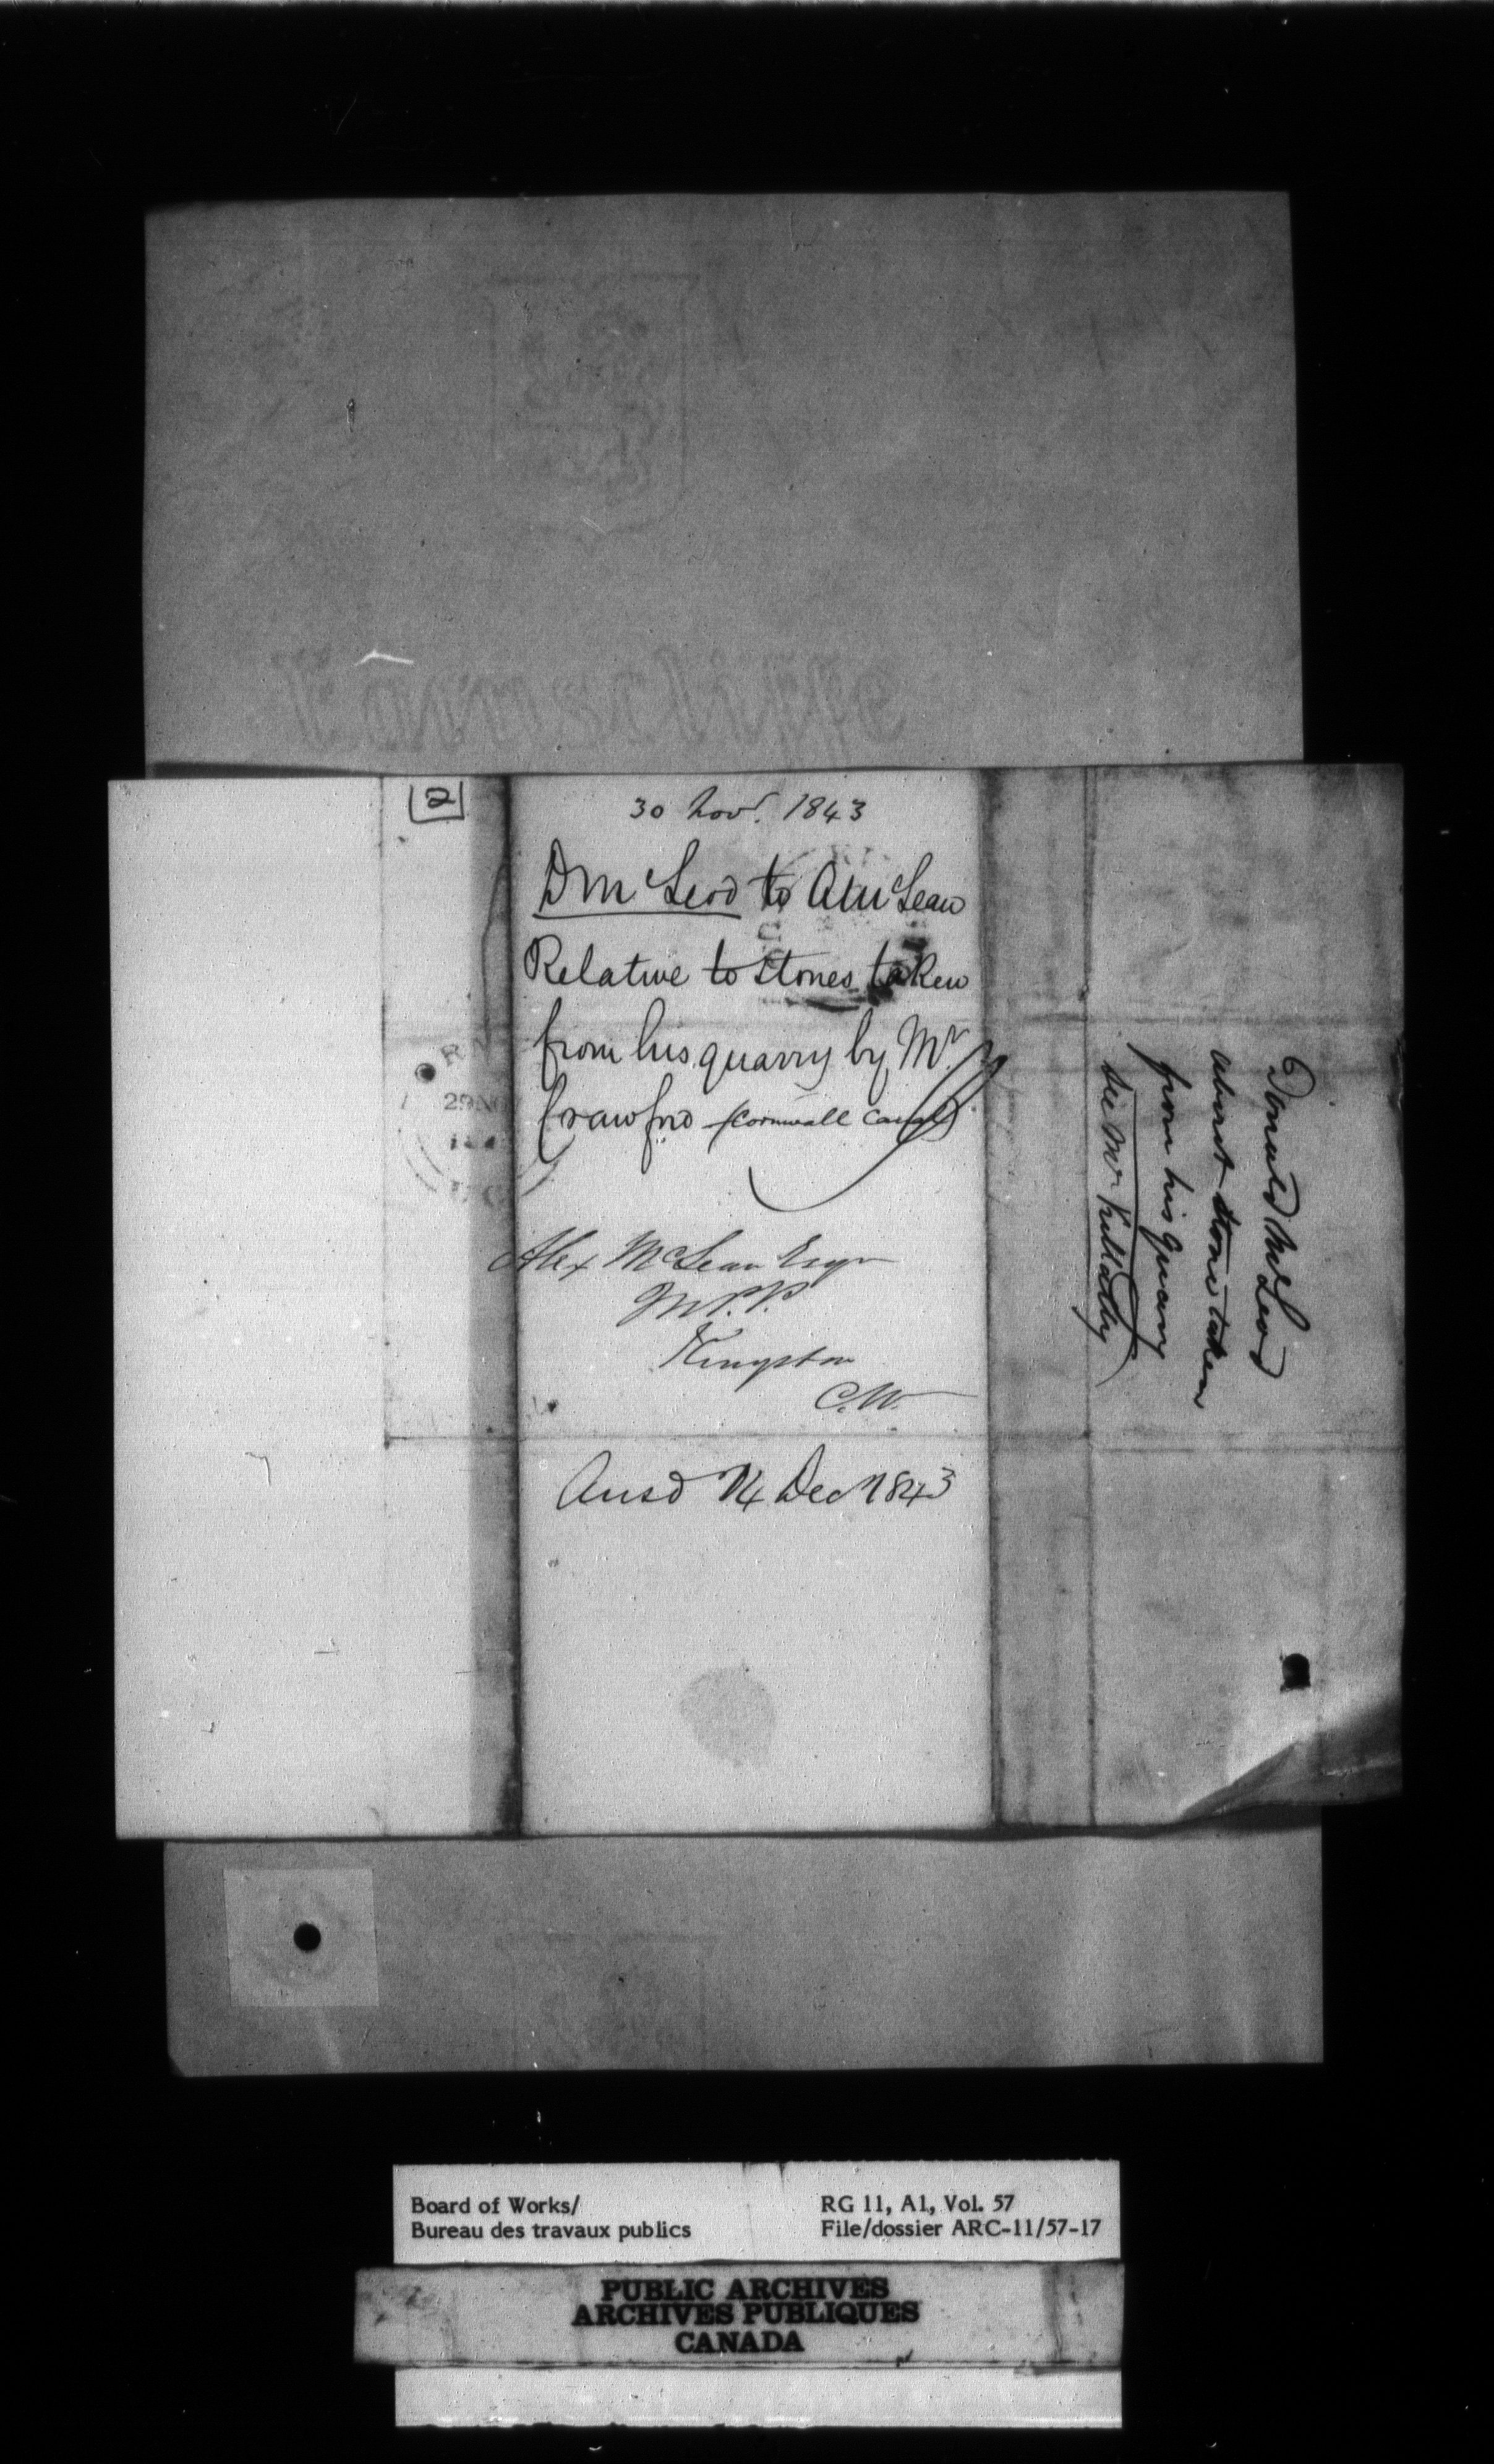 [2]
30 Nov. 1843
D McLeod to A McLean
Relative to stones taken
from his quarry by Mr
Crawford (Cornwall Canal)
29 NO
184
Alex McLean Esqr
M.P.P.
Kingston
C.W.
Ansd 14 Dec 1843
Donald McLeod
about stone taken
from his quarry
see Mr Killaly
Board of Works/
Bureau des travaux publics
RG 11, A1, Vol. 57
File/dossier ARC-11/57-17
PUBLIC ARCHIVES
ARCHIVES PUBLIQUES
CANADA